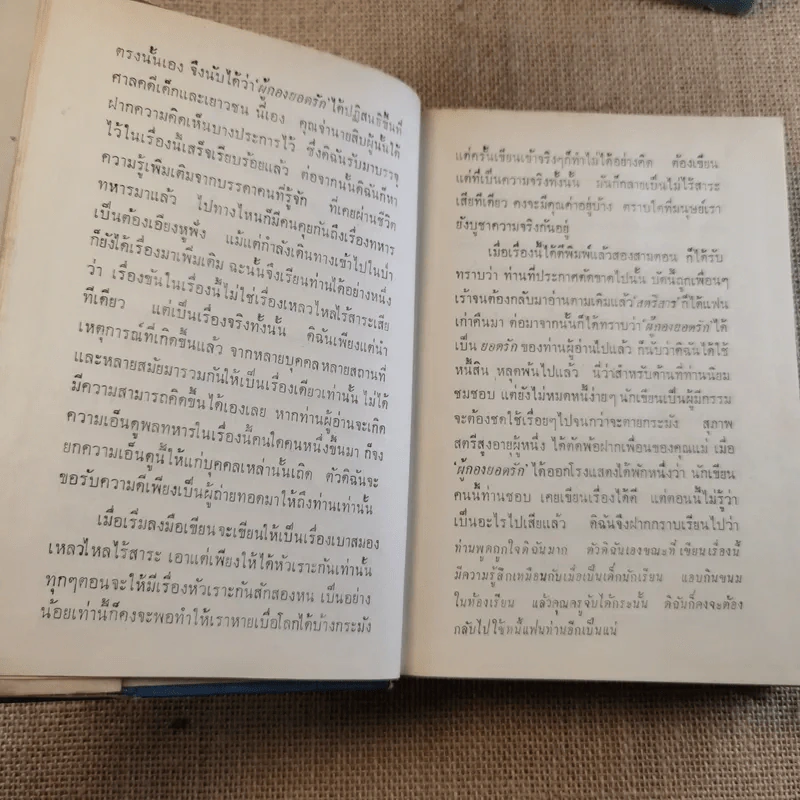 ตรงนั้นเอง จึงนับได้ว่า 'ผู้กองยอดรัก' ได้ปฏิสนธิขึ้นที่
ศาลคดีเด็กและเยาวชน นี้เอง คุณจ่านายสิบผู้นั้นได้
ฝากความคิดเห็นบางประการไว้ ซึ่งดิฉันรับมาบรรจุ
ไว้ในเรื่องนี้เสร็จเรียบร้อยแล้ว ต่อจากนั้นดิฉันก็หา
ความรู้เพิ่มเติมจากบรรดาคนที่รู้จัก ที่เคยผ่านชีวิต
ทหารมาแล้ว ไปทางไหนก็มีคนคุยกันถึงเรื่องทหาร
เป็นต้องเอียงหูฟัง แม้แต่กำลังเดินทางเข้าไปในป่า
ก็ยังได้เรื่องมาเพิ่มเติม ฉะนั้นจึงเรียนท่านได้อย่างหนึ่ง
ว่า เรื่องขันในเรื่องนี้ไม่ใช่เรื่องเหลวไหลไร้สาระเสีย
ทีเดียว แต่เป็นเรื่องจริงทั้งนั้น ดิฉันเพียงแต่นำ
เหตุการณ์ที่เกิดขึ้นแล้ว จากหลายบุคคลหลายสถานที่
และหลายสมัยมารวมกันให้เป็นเรื่องเดียวเท่านั้น ไม่ได้
มีความสามารถคิดขึ้นได้เองเลย หากท่านผู้อ่านจะเกิด
ความเอ็นดูพลทหารในเรื่องนี้คนใดคนหนึ่งขึ้นมา ก็จง
ยกความเอ็นดูนี้ให้แก่บุคคลเหล่านั้นเถิด ตัวดิฉันจะ
ขอรับความดีเพียงเป็นผู้ถ่ายทอดมาให้ถึงท่านเท่านั้น
เมื่อเริ่มลงมือเขียน จะเขียนให้เป็นเรื่องเบาสมอง
เหลวไหลไร้สาระ เอาแต่เพียงให้ได้หัวเราะกันเท่านั้น
ทุกๆตอนจะให้มีเรื่องหัวเราะกันสักสองหน เป็นอย่าง
น้อยเท่านี้ก็คงจะพอทำให้เราหายเบื่อโลกได้บ้างกระมัง
แต่ครั้นเขียนเข้าจริงๆก็ทำไม่ได้อย่างคิด ต้องเขียน
แต่ที่เป็นความจริงทั้งนั้น มันก็กลายเป็นไม่ไร้สาระ
เสียทีเดียว คงจะมีคุณค่าอยู่บ้าง ตราบใดที่มนุษย์เรา
ยังบูชาความจริงกันอยู่
เมื่อเรื่องนี้ได้ตีพิมพ์แล้วสองสามตอน ก็ได้รับ
ทราบว่า ท่านที่ประกาศตัดขาดไปนั้น บัดนี้ถูกเพื่อนๆ
เร้าจนต้องกลับมาอ่านตามเดิมแล้ว 'สตรีสาร' ก็ได้แฟน
เก่าคืนมา ต่อมาจากนั้นก็ได้ทราบว่า 'ผู้กองยอดรัก' ได้
เป็น ยอดรัก ของท่านผู้อ่านไปแล้ว ก็นับว่าดิฉันได้ใช้
หนี้สิน หลุดพ้นไปแล้ว นี่ว่าสำหรับด้านที่ท่านนิยม
ชมชอบ แต่ยังไม่หมดหนี้ง่ายๆ นักเขียนเป็นผู้มีกรรม
จะต้องชดใช้เรื่อยๆไปจนกว่าจะตายกระมัง สุภาพ
สตรีสูงอายุผู้หนึ่ง ได้ตัดพ้อฝากเพื่อนของคุณแม่ เมื่อ
'ผู้กองยอดรัก' ได้ออกโรงแสดงได้พักหนึ่งว่า นักเขียน
คนนี้ท่านชอบ เคยเขียนเรื่องได้ดี แต่ตอนนี้ไม่รู้ว่า
เป็นอะไรไปเสียแล้ว ดิฉันจึงฝากกราบเรียนไปว่า
ท่านพูดถูกใจดิฉันมาก ตัวดิฉันเองขณะที่เขียนเรื่องนี้
มีความรู้สึกเหมือนกับเมื่อเป็นเด็กนักเรียน แอบกินขนม
ในห้องเรียน แล้วคุณครูจับได้กระนั้น ดิฉันก็คงจะต้อง
กลับไปใช้หนี้แฟนท่านอีกเป็นแน่